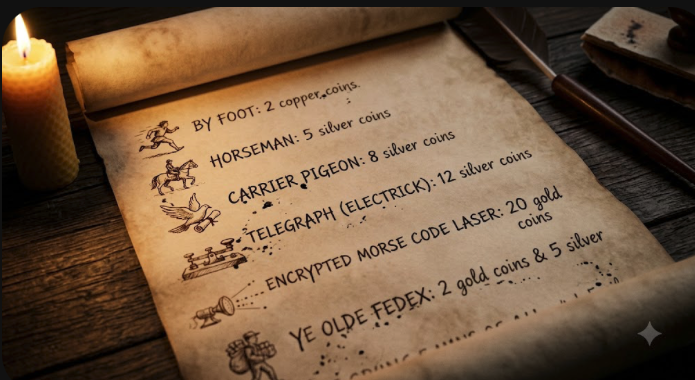 BY FOOT: 2 copper coins.
HORSEMAN: 5 silver coins
CARRIER PIGEON: 8 silver coins
TELEGRAPH (ELECTRICK): 12 silver coins
ENCRYPTED MORSE CODE LASER: 20 gold
coins
YE OLDE FEDEX: 2 gold coins & 5 silver